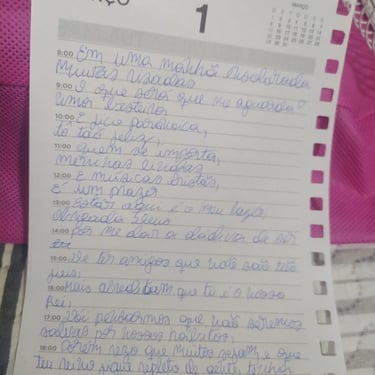 MARÇO
1
MARÇO
8:00 Em uma manhã ensolarada
Muitas risadas
9:00 O que será que me aguarda?
Uma
10:00 E fico paranoica,
tô tão feliz,
11:00 quem se importa,
meninas lindas
12:00 E músicas cristãs,
É um prazer
13:00 Estar aqui é o meu lazer
obrigada Deus
14:00 por me dar a dádiva de ser
15:00 De ter amigos que não são tão
seus,
16:00 Mais acreditam que tu é o nosso
Rei,
17:00 Dói pensarmos que não seremos
salvos por nossos
18:00 Porém rezo que muitos sejam, e que
teu reino repleto de gente